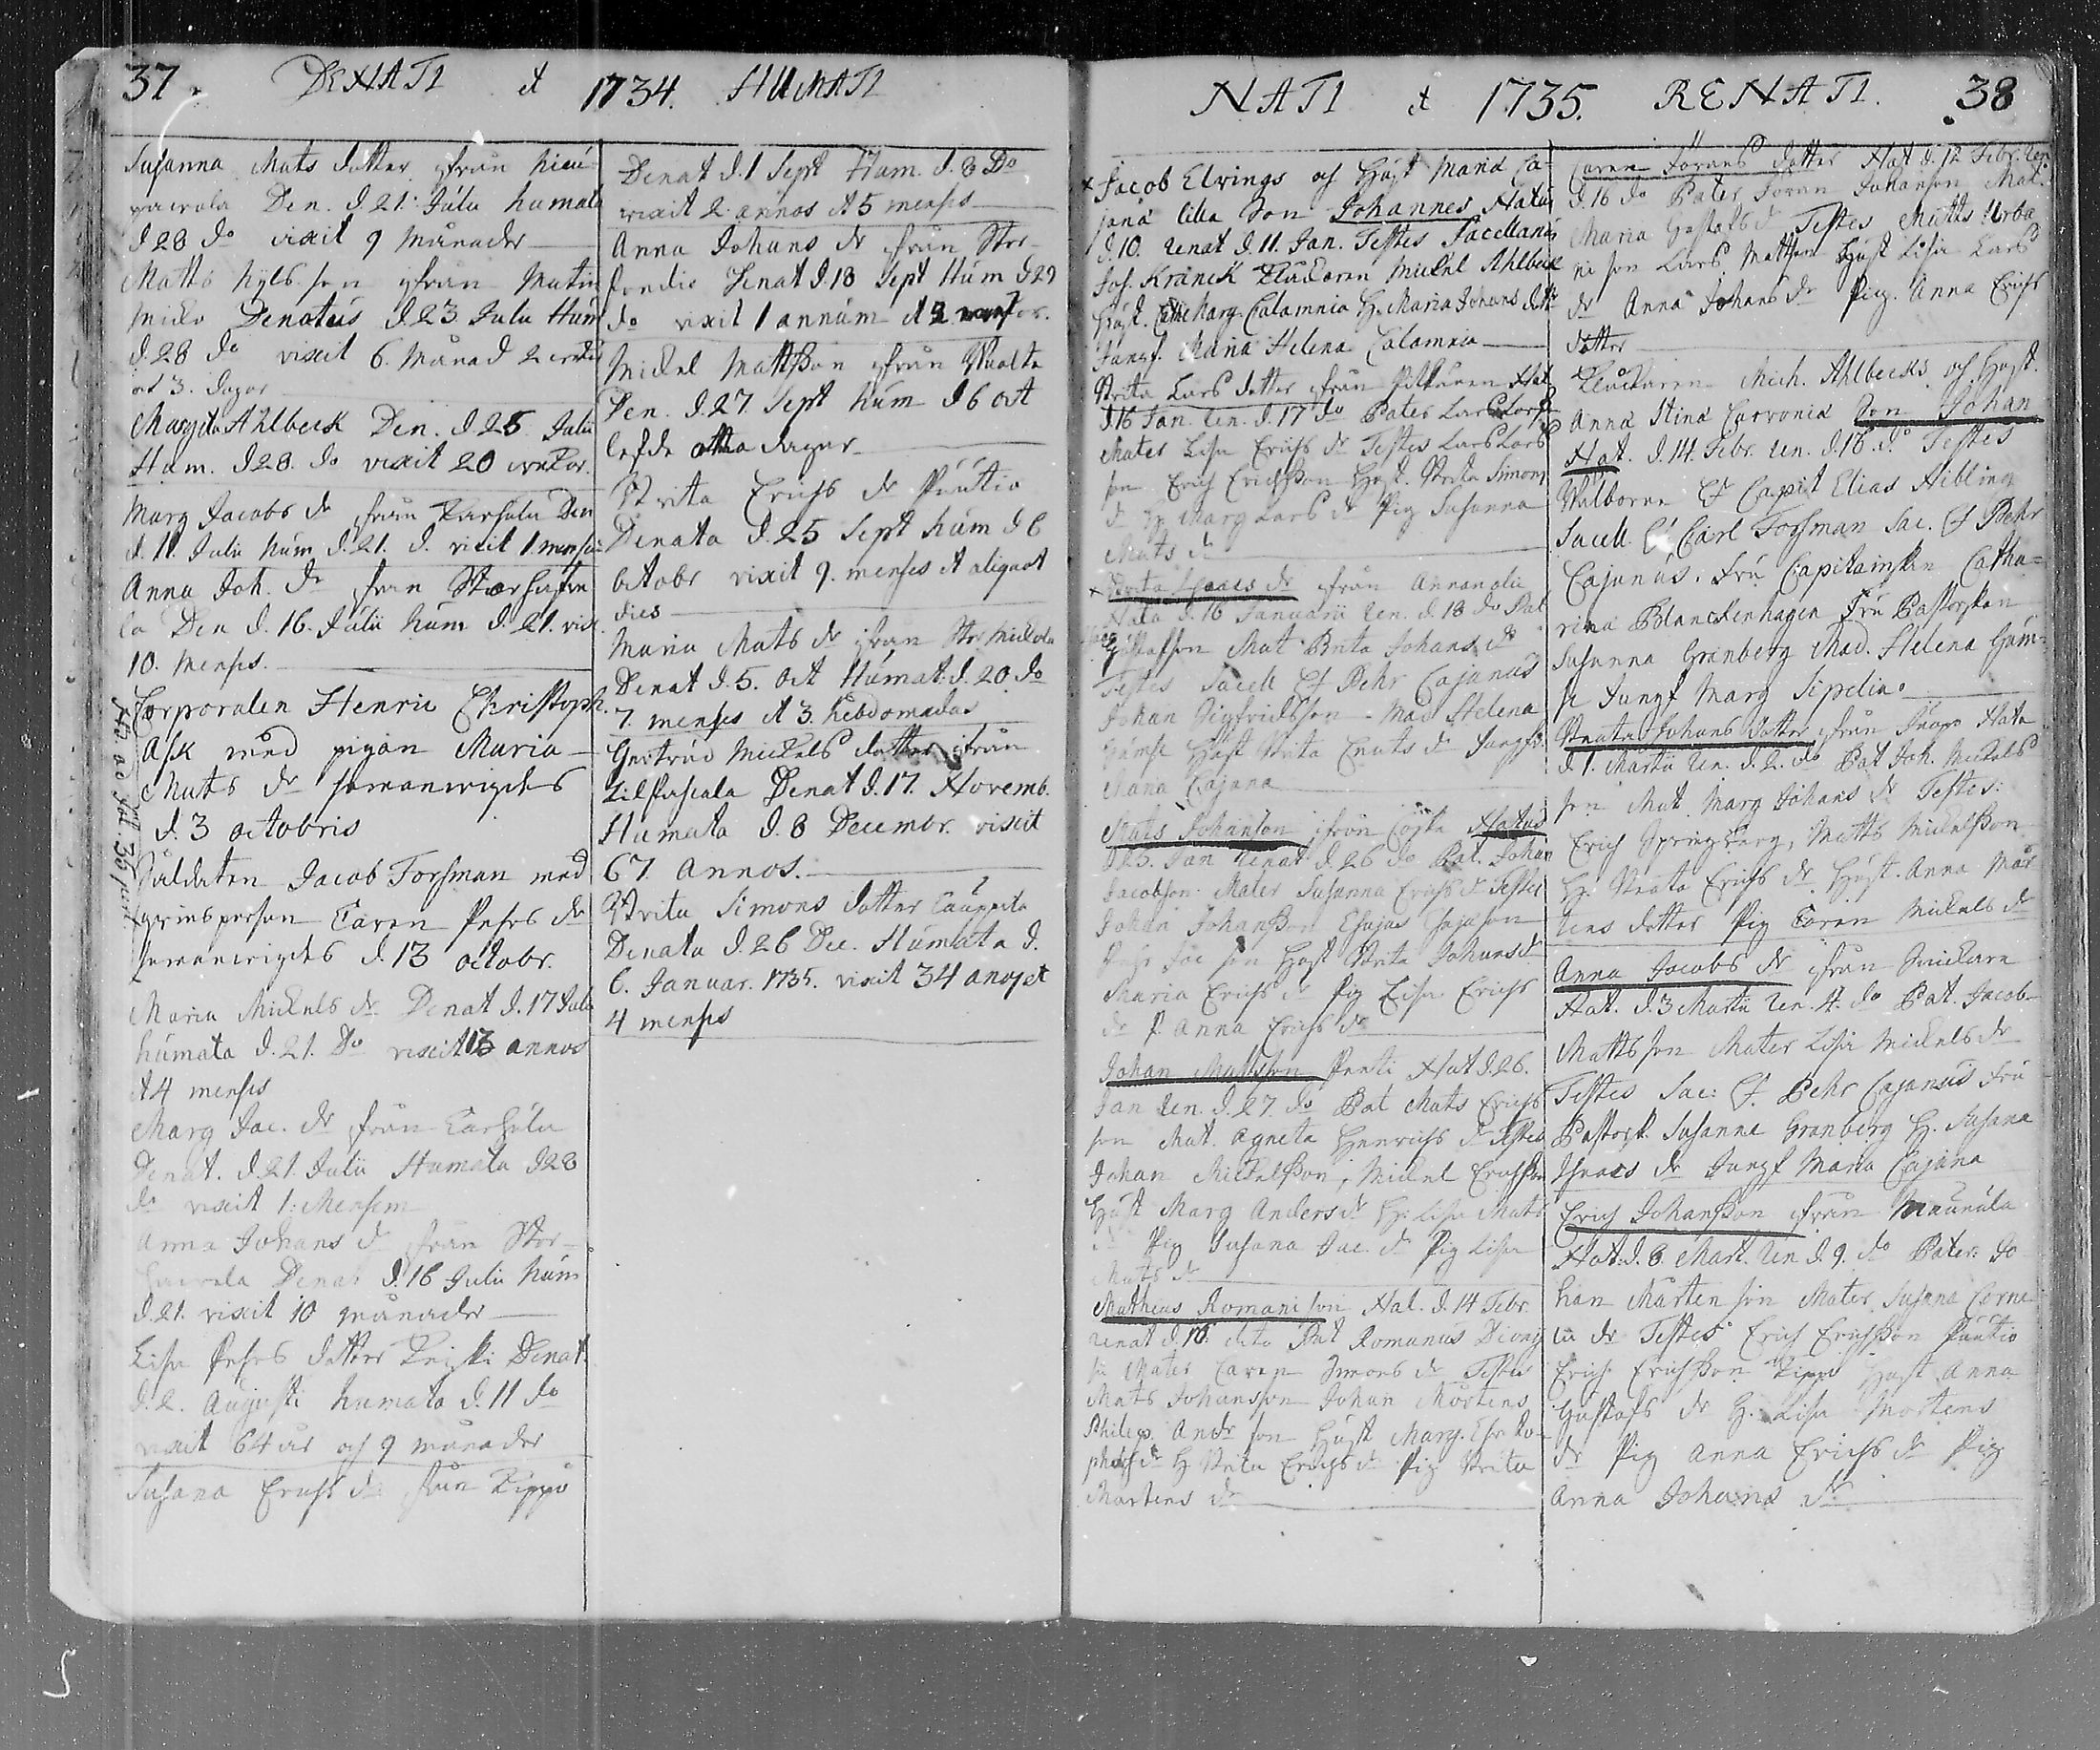 37. DENATI et 1734. HUMATI
Susanna Mats dotter från Nieu-
vacvola Den. d. 21. Julii humata
d 28 do vixit 9 månader
Matts Nyls son från Matin
Micko Denatus d. 23 Julii Hum
d. 28 do vixit 6. månad 2 weckor
och 3. dagar
Margeta Ahlbeck Den. d. 25 Julii
Hum. d 28. do vixit 20 weckor.
Marg Jacobs dr från Karhula Den
d. 11 Julii hum d. 21. d. vixit 1. mensem
Anna Joh. dr från Stor
la Den d. 16. Julii hum d. 21. vix.
10. menses.
Corporalen Henric Christoph.
Ask med pigan Maria
Mats dr sammanwigdes
d. 3 octobris
Soldaten Jacob Forsman med
qwinsperson Caren Pehrs dr
sammanwigdes d. 13 octobr.
Maria Mickels dr Denat d. 17 Julii
humata d. 21. Do vixit 13 annos
et 4 menses
Marg Jac. dr från Carhula
Denat. d. 21. Julii Humata d 28
do vixit 1. Mensem
Anna Johans dr från Stor-
Denat d. 16 Julii hum
d. 21. vixit 10 månader
Lisa Pehrs dotter Denat.
d. 2. Augusti humata d. 11 do
vixit 64 år och 9 månader
Susana Erichs dr från Kippo
Denat d. 1 Sept Hum. d. 8 Do
vixit 2. annos et 5 menses
Anna Johans dr från Stor-
Denat d. 18 Sept Hum d 29
do vixit 1 annum et
Mickel Mattsson från
Den. d. 27. Sept hum d 6 oct
lefde otta dagar
Brita Erichs dr Puutio
Denata d. 25 Sept hum d 6
octobr vixit 9. menses et aliquot
dies
Maria Mats dr från Stor Mickola
Denat d. 5. Oct Humat. d. 20 do
7. menses et 3. hebdomadas
Gertrud Mickels dotter från
Denat d. 17. Novemb.
Humata d. 8 Decembr. vixit
67. Annos.
Brita Simons dotter Cauppila
Denata d. 26 Dec. Humata d.
6. Januar. 1735. vixit 34 anos et
4 menses
NATI et 1735. RENATI. 38
Jacob Elvings och Hust Maria Ca-
jana lilla Son Johannes Natus
d. 10. renat d. 11. Jan. Testes Sacellanus
Joh. Kranck Klåckaren Mickel Ahlbeck
Hust. Marg. Calamnia H. Maria Johans dotter
Jungf. Maria Helena Calamnia
Brita Lars dotter från Nat
d. 16 Jan. Ren. d. 17 do Pater Lars Larsson
Mater Lisa Erichs dr Testes Lars Lars
son Erich Erichsson Hust. Brita Simons
dr H. Marg Lars dr Pig Susanna
Mats dr
Brita Isaacs dr från Annanolli
Nata d. 16 Januarii Ren. d. 18 do Pat
Isaac Gustafson Mat Brita Johans dr
Testes Sacell Hr Pehr Cajanus
Johan Sigfridsson - Mad Helena
Hust Brita Cnuts dr Jungfr.
Maria Cajana
Mats Johanson från Costa Natus
d 25. Jan Renat d. 26 do Pat. Johan
Jacobson Mater Susanna Erichs dr Testes
Johan Johansson Esajas Esajason
Pehr Jac son Hust Brita Johans dr
Maria Erichs dr Pig Lisa Erichs
dr P. Anna Erichs dr
Johan Mattsson Pentti Nat d. 26.
Jan Ren. d. 27. do Pat Mats Erichs
son Mat. Agneta Henrichs dr Testes
Johan Mickelsson, Mickel Erichsson
Hust Marg Anders dr H. Lisa Mats
dr Pig Susana Jac. dr Pig Lisa
Mats dr
Mathias Romanison Nat. d. 14 Febr.
renat d. 16. dito Pat Romanus Dionij
sii Mater Caren Simons dr Testes
Mats Johansson Johan Mårtens
Philip. Andr son Hust Marg.
H Brita Erichs dr Pig Brita
Mårtens dr
Caren Jörans dotter Nat d. 12 Febr. Ren
d. 16 do Pater Joran Johanson Mat.
Maria Gustafs dr Testes Matts Urba
ni son Lars Mattson Hust Lisa Lars
dr Anna Johans dr Pig. Anna Erichs
dotter
Klåckaren Mich. Ahlbecks och Hust.
Anna Stina Carvonia Son Johan
Nat. d. 14. Febr. Ren. d. 16. do Testes
Wälborne Hr Capit Elias Aibling
Sacell. Hr Carl Forsman Sac. Hr Pehr
Cajanus. Fru Capitainskan Catha-
rina Blanckenhagen Fru Pastorskan
Susanna Granberg Mad. Helena
Jungf Marg Sipelia
Beata Johans dotter från Nata
d. 1. Martii Ren. d. 2. do Pat Joh. Mickels
son Mat Marg Johans dr Testes:
Erich Springberg, Matts Mickelsson
H. Beata Erichs dr Hust. Anna Mår
tens dotter Pig Caren Mickels dr
Anna Jacobs dr från
Nat. d. 3 Martii Ren. 4. do Pat. Jacob
Matts son Mater Lisa Mickels dr
Testes Sac: Hr Pehr Cajanus Fru
Pastorsk. Susanna Granberg H. Susana
Isaacs dr Jungf Maria Cajana
Erich Johansson från Maunula
Nat. d. 8. Mart. Ren d. 9. do Pater: Jo
han Mårtenson Mater Susana Corne
lii dr Testes Erich Erichsson Puutio
Erich Erichsson Kippo Hust Anna
Gustafs dr H. Lisa Mårtens
dr Pig Anna Erichs dr Pig
Anna Johans dr